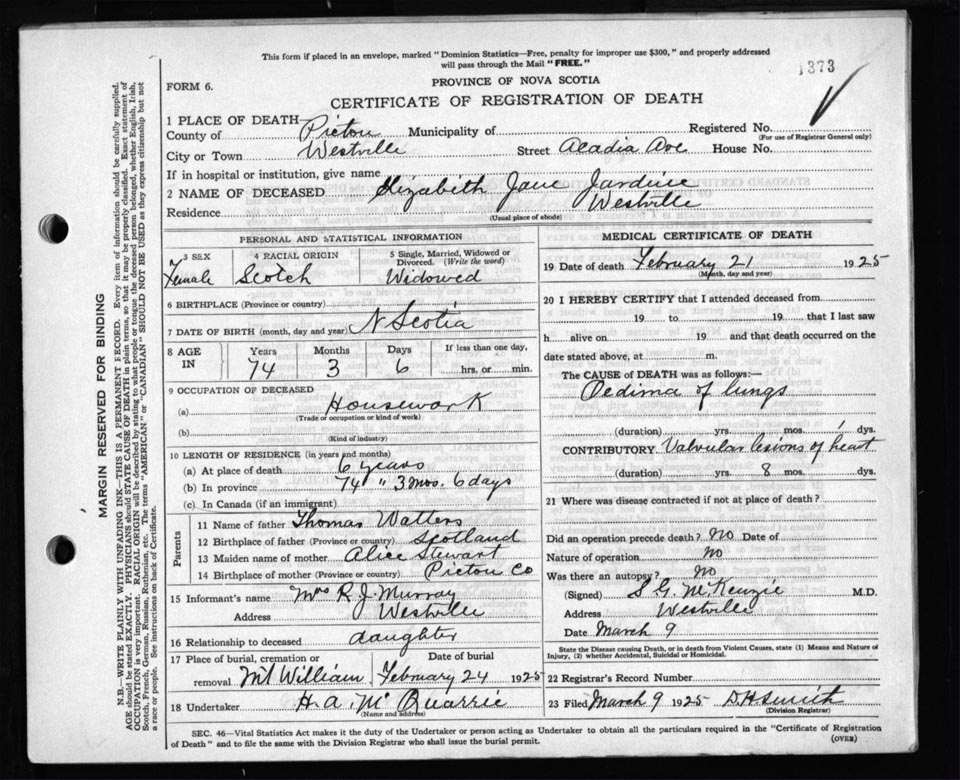 This form if placed in an envelope, marked "Dominion Statistics—Free, penalty for improper use $300," and properly addressed
will pass through the Mail "FREE."
1373
FORM 6.
PROVINCE OF NOVA SCOTIA
CERTIFICATE OF REGISTRATION OF DEATH
1 PLACE OF DEATH—
County of Pictou Municipality of Registered No.
(For use of Registrar General only)
City or Town Westville Street Acadia Ave House No.
If in hospital or institution, give name
2 NAME OF DECEASED Elizabeth Jane Jardine
Residence Westville
(Usual place of abode)
PERSONAL AND STATISTICAL INFORMATION
3 SEX
Female
4 RACIAL ORIGIN
Scotch
5 Single, Married, Widowed or
Divorced. (Write the word)
Widowed
6 BIRTHPLACE (Province or country)
N Scotia
7 DATE OF BIRTH (month, day and year)
8 AGE IN
Years 74
Months 3
Days 6
If less than one day,
hrs. or min.
9 OCCUPATION OF DECEASED
(a) Housework
(Trade or occupation or kind of work)
(b)
(Kind of industry)
10 LENGTH OF RESIDENCE (in years and months)
(a) At place of death 6 years
(b) In province 74 " 3 mos. 6 days
(c) In Canada (if an immigrant)
Parents
11 Name of father Thomas Watters
12 Birthplace of father (Province or country) Scotland
13 Maiden name of mother Alice Stewart
14 Birthplace of mother (Province or country) Pictou Co
15 Informant's name Mrs R. J. Murray
Address Westville
16 Relationship to deceased daughter
17 Place of burial, cremation or
removal Mt William
Date of burial
February 24 1925
18 Undertaker H. A. McQuarrie
(Name and address)
MEDICAL CERTIFICATE OF DEATH
19 Date of death February 21 1925
(Month, day and year)
20 I HEREBY CERTIFY that I attended deceased from
19 to 19 that I last saw
h alive on 19 and that death occurred on the
date stated above, at m.
The CAUSE of DEATH was as follows:—
Oedima of lungs
(duration) yrs. mos. 1 dys.
CONTRIBUTORY. Valvular lesions of heart
(duration) yrs. 8 mos. dys.
21 Where was disease contracted if not at place of death?
Did an operation precede death? No Date of
Nature of operation No
Was there an autopsy? No
(Signed) S G McKenzie M.D.
Address Westville
Date March 9
State the Disease causing Death, or in death from Violent Causes, state (1) Means and Nature of
Injury, (2) whether Accidental, Suicidal or Homicidal.
22 Registrar's Record Number
23 Filed March 9 1925 D.H. Smith
(Division Registrar)
SEC. 46—Vital Statistics Act makes it the duty of the Undertaker or person acting as Undertaker to obtain all the particulars required in the "Certificate of Registration
of Death" and to file the same with the Division Registrar who shall issue the burial permit.
(OVER)
MARGIN RESERVED FOR BINDING
N.B.—WRITE PLAINLY WITH UNFADING INK—THIS IS A PERMANENT RECORD. Every item of information should be carefully supplied.
AGE should be stated EXACTLY. PHYSICIANS should STATE CAUSE OF DEATH in plain terms, so that it may be properly classified. Exact statement of
OCCUPATION is very important. RACIAL ORIGIN will be described by stating to what people or tongue the deceased person belonged, whether English, Irish,
Scotch, French, German, Russian, Ruthenian, etc. The terms "AMERICAN" or "CANADIAN" SHOULD NOT BE USED as they express citizenship but not
a race or people. See instructions on back of Certificate.